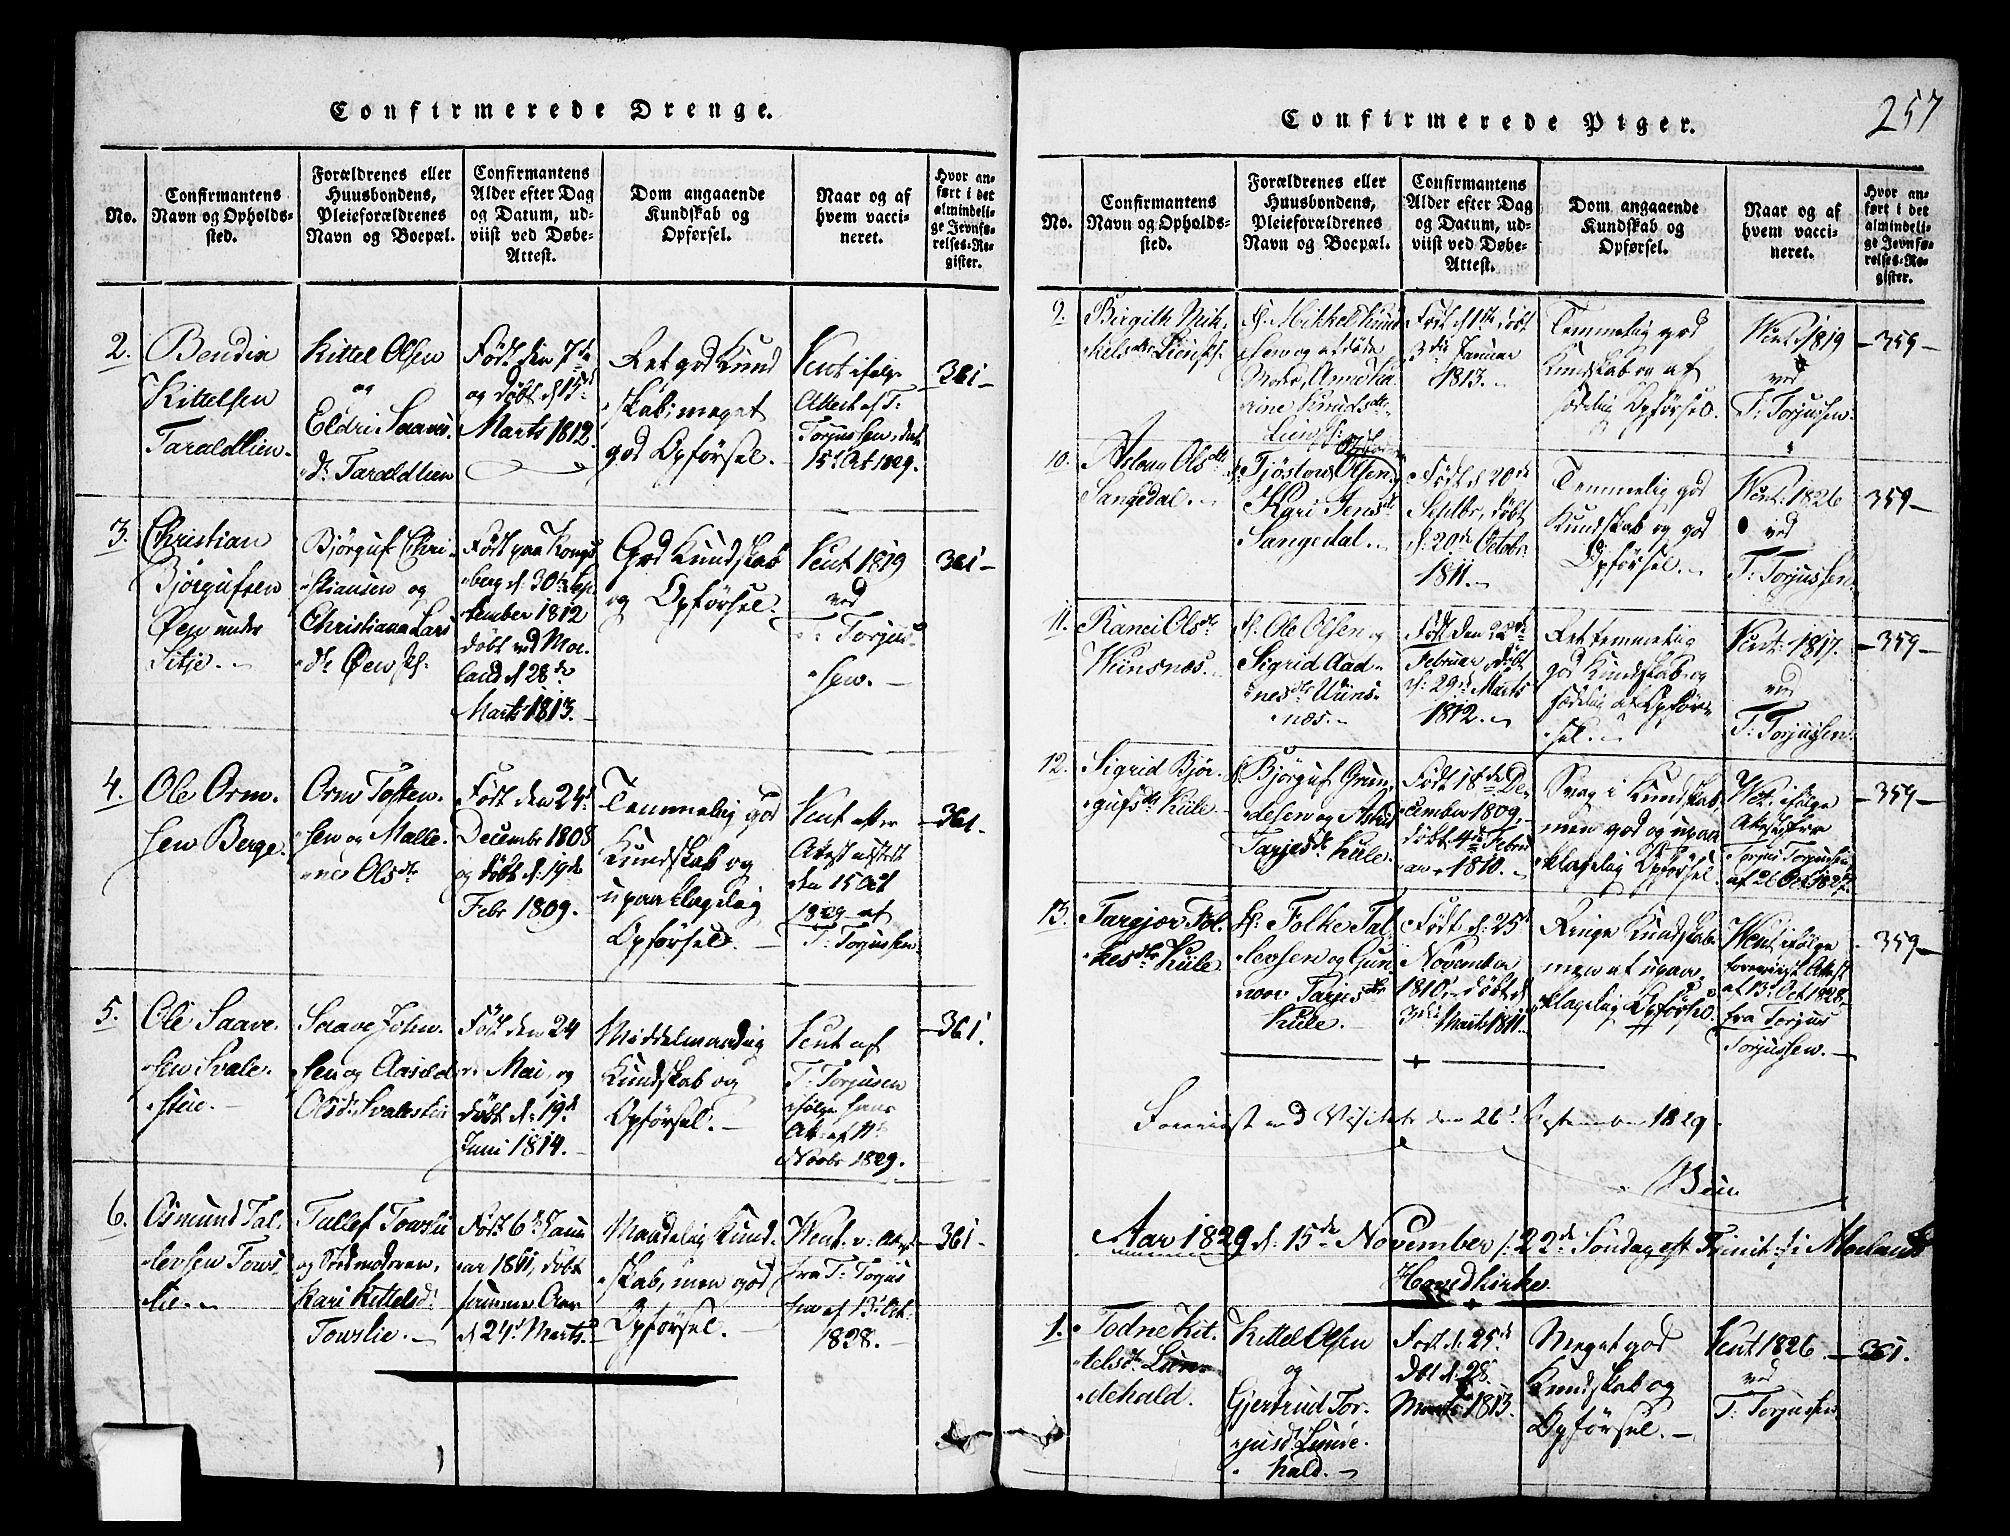 Confirmerede Drenge.
No.
Confirmantens
Navn og Opholds-
sted.
Forældrenes eller
Huusbondens,
Pleieforældrenes
Navn og Boepæl.
Confirmantens
Alder efter Dag
og Datum, ud-
viist ved Døbe-
Attest.
Dom angaaende
Kundskab og
Opførsel.
Naar og af
hvem vacci-
neret.
Hvor an-
ført i det
almindeli-
ge Jevnfø-
relses-Re-
gister.
2.
Bendix
Kittelsen
Taraldlien.
Kittel Olsen
og
Eldri Saaves
dr Taraldlien
Født den 7de
og døbt d 15d
Marts 1812.
Ret god Kund
skab; meget
god Opførsel.
Vent ifølge
Attest af T:
Torjussen, dat
15d Oct 1829.
361-
3.
Christian
Bjørgufsen
Øen under
Sitje.
Bjørguf Chri-
stiansen og
Christiana Lars
dr Øen
Født paa Kongs
berg d. 30te Sep
tember 1812
døbt ved Moe
land d 28de
Marts 1813.
God Kundskab
og Opførsel.
Vent 1819
ved
T: Torjus-
sen.
361-
4.
Ole Orm-
sen Berge.
Orm Tosten-
sen og Malle
nes Olsdtr
Født den 24d
Decembr 1808
og døbt d. 19de
Febr 1809.
Temmelig god
Kundskab og
upaaklagelig
Opførsel.
Vent efter
Attest udstedt
den 15 Oct
1829 af
T: Torjussen
-361-
5.
Ole Saave-
sen Svale-
stue.
Saave John-
sen og Aasild
Olsdr Svalestue
Født den 24
Mai, og
døbt d. 19d
Juni 1814.
Middelmaadig
Kundskab og
Opførsel.
Vent af
T: Torjusen
ifølge hans
At: af 11te
Novbr 1829.
-361.
6.
Osmund Tal-
levsen Tows-
lie.
Tallef Towslie
og Stedmoderen,
Kari Kittelsdr
Towslie.
Født 6te Janu
ar 1811, døbt
samme Aar
d 24d Marts.
Maadelig Kund-
skab, men god
Opførsel.
Vent. v: Attest
fra T: Torjus
sen af 13d Oct.
1828.
-361-
Confirmerede Piger.
257
No.
Confirmantens
Navn og Opholds-
sted.
Forældrenes eller
Huusbondens,
Pleieforældrenes
Navn og Boepæl.
Confirmantens
Alder efter Dag
og Datum, ud-
viist ved Døbe-
Attest.
Dom angaaende
Kundskab og
Opførsel.
Naar og af
hvem vacci-
neret.
Hvor an-
ført i det
almindeli-
ge Jevnfø-
relses-Re-
gister.
9.
Birgith Mik-
kelsdr
F. Mikkel Knud
sen og afdøde
Moder, Anne Ka
trine Knudsdtr
Født d 1ste døbt
3die Januar
1813.
Temmelig god
Kundskab og af
sædelig Opførsel.
Vent 1819
ved
T: Torjussen.
-359-
10.
Aslaug Olsdtr
Sangedal.
Tjøstow Olsen
Kari Jensdr
Sangedal.
Født d 20de
Septbr, døbt
d. 20de Octobr
1811.
Temmelig god
Kundskab og god
Opførsel.
Vent: 1826
ved
T: Torjussen.
359-
11.
Ranei Olsdtr
Wiinsnæs.
F. Ole Olsen og
Sigrid Aad-
nesdtr Wiins-
næs.
Født den 22de
Februar, døbt
d. 29d Marts
1812.
Ret temmelig
god Kundskab og
sædelig af Opfør-
sel.
Vent: 1817.
ved
T: Torjussen.
-359-
12.
Sigrid Bjør-
gufsdr Kiile
Bjørguf Gun-
delsen og Astrid
Tarjesdr Kiile.
Født 18de De-
cember 1809,
døbt 4de Febru
ar, 1810.
Svag i Kundskab,
men god og upaa
klagelig Opførsel
Vet: ifølge
Attest fra
Torjus Torjussen
af 26 Oct 1827.
-359-
13.
Targjær Fol-
kesdtr Kiile
F. Folke Tal
levsen og Gun
noer Tarjesdtr
Kiile.
Født d. 25d
November
1810, døbt d
3die Marts 1811.
Ringe Kundskab
men af upaa-
klagelig Opførsel.
Vent ifølge
foreviist Attest
af 13d Oct 1828
fra Torjus
Torjussen.
-359-
Foreviist ved Visitats den 26d September 1829
Aar 1829 d. 15de November /: 22de Søndag eft Trinit: :/ i Moelands
Hovedkirke
1.
Todne Kit-
telsdr Lun-
dehald.
Kittel Olsen
og
Gjertrud Tor-
jusdr Lunde-
hald.
Født d. 25d
Døbt d. 28
Marts 1813.
Meget god
Kundskab og
Opførsel.
Vent 1826
ved
T: Torjussen
361.